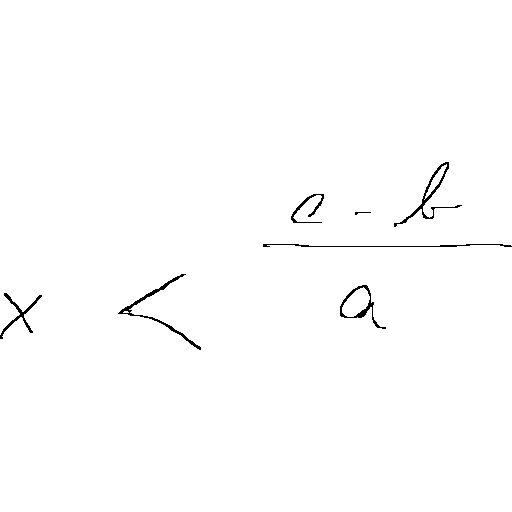 x < \frac{c - b}{a}